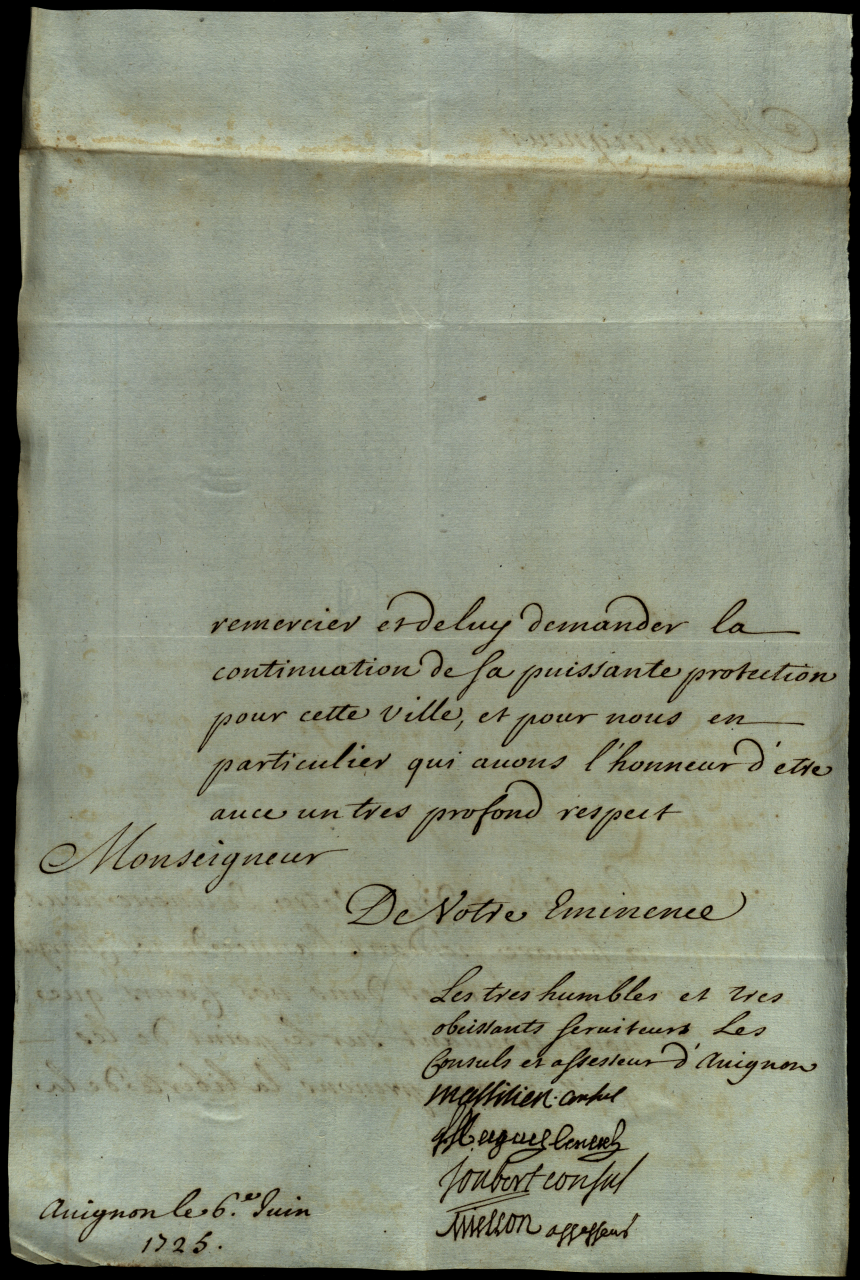 remercier et de luy demander la
continuation de sa puissante protection
pour cette ville, et pour nous en
particulier qui auons l'honneur d'etre
auec un tres profond respect
Monseigneur
De Votre Eminence
Les tres humbles et tres
obeissants seruiteurs Les
Consuls et assesseur d'Auignon
Massilien consul
consul
Joubert consul
assesseur
Auignon le 6.e Juin
1725.